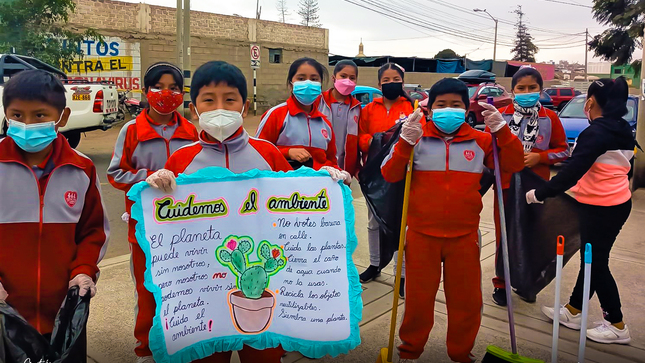 Cuidemos el ambiente
El planeta
puede vivir
sin nosotros,
pero nosotros no
podemos vivir sin
el planeta.
¡Cuida el
ambiente!
- No botes basura
en calle.
Cuida las plantas.
Cierra el caño
de agua cuando
no la usas.
Recicla los objetos
reutilizables.
Siembra una planta.